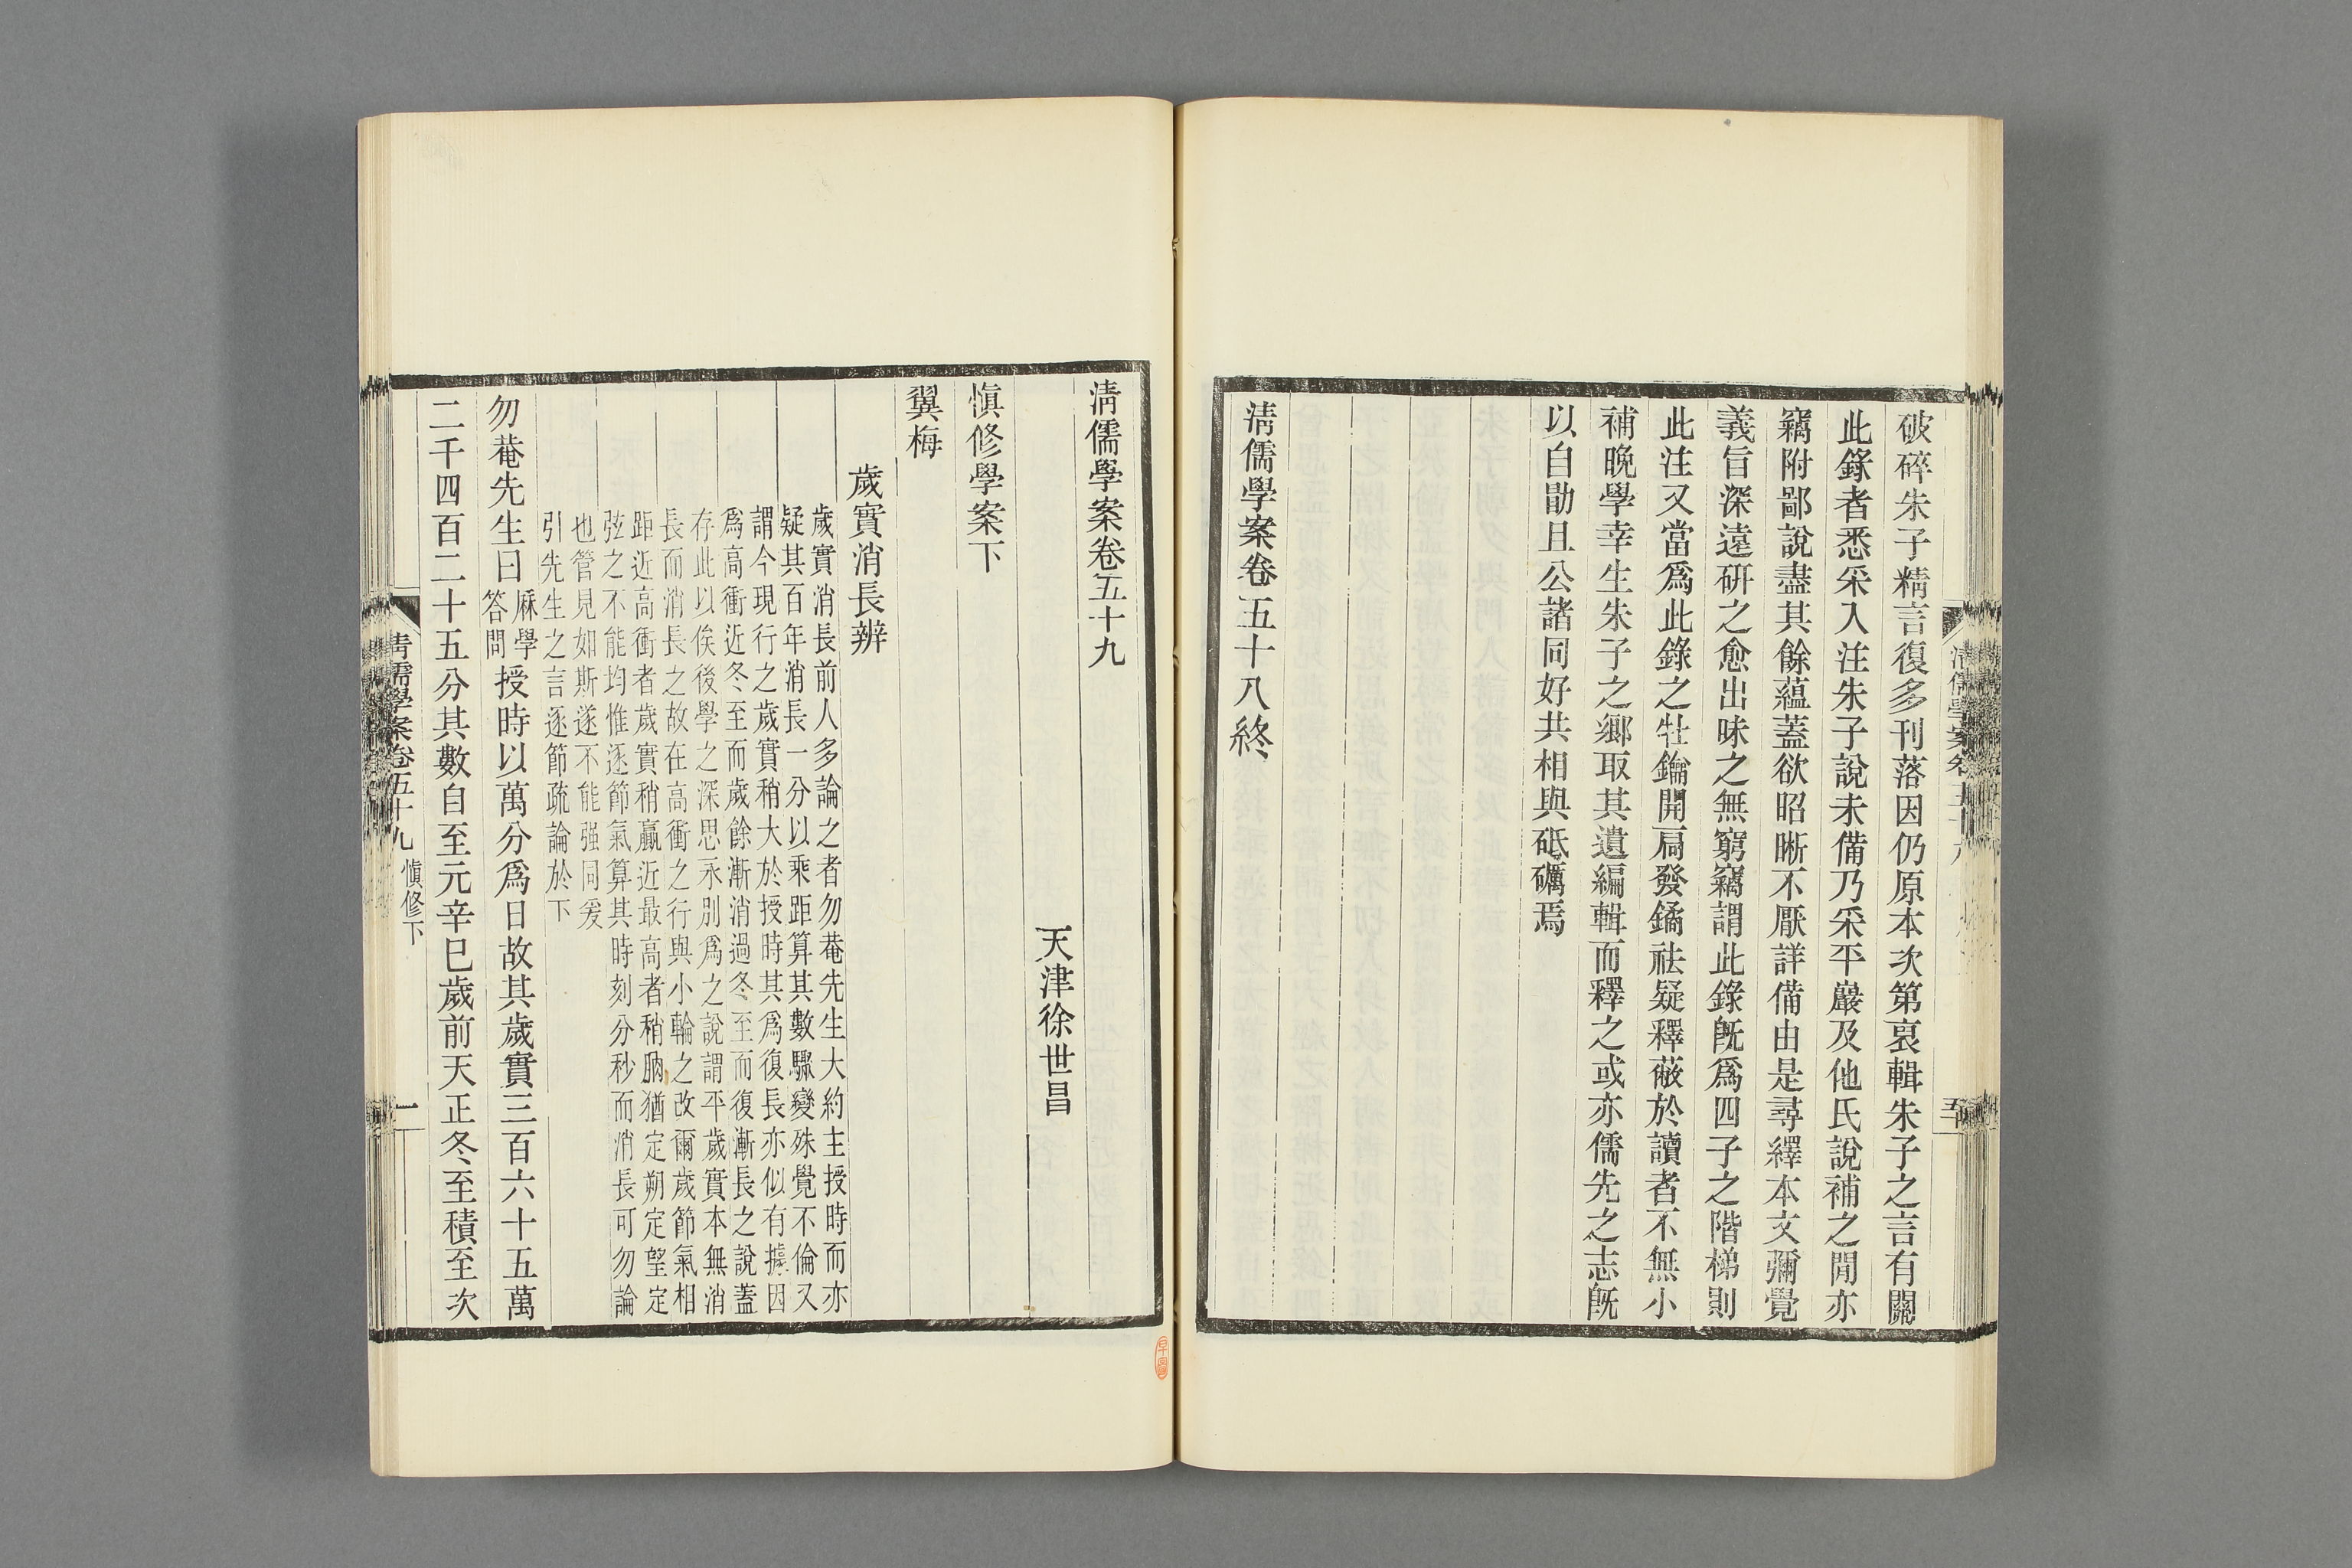 破碎朱子精言復多刊落因仍原本次第裒輯朱子之言有關
此錄者悉采入注朱子說未備乃采平巖及他氏說補之閒亦
竊附鄙說盡其餘蘊蓋欲昭晰不厭詳備由是尋繹本文彌覺
義旨深遠研之愈出味之無窮竊謂此錄旣爲四子之階梯則
此注又當爲此錄之牡鑰開扃發鐍祛疑釋蔽於讀者不無小
補晚學幸生朱子之鄉取其遺編輯而釋之或亦儒先之志旣
以自勖且公諸同好共相與砥礪焉
淸儒學案卷五十八終
淸儒學案卷五十九
天津徐世昌
愼修學案下
翼梅
歲實消長辨
歲實消長前人多論之者勿菴先生大約主授時而亦
疑其百年消長一分以乘距算其數驟變殊覺不倫又
謂今現行之歲實稍大於授時其爲復長亦似有據因
爲高衝近冬至而歲餘漸消過冬至而復漸長之說蓋
存此以俟後學之深思永別爲之說謂平歲實本無消
長而消長之故在高衝之行與小輪之改爾歲節氣相
距近高衝者歲實稍贏近最高者稍朒猶定朔定望定
弦之不能均惟逐節氣算其時刻分秒而消長可勿論
也管見如斯遂不能强同爰
引先生之言逐節疏論於下
勿菴先生曰厤學答問授時以萬分爲日故其歲實三百六十五萬
二千四百二十五分其數自至元辛巳歲前天正冬至積至次
淸儒學案卷五十九 愼修下 一